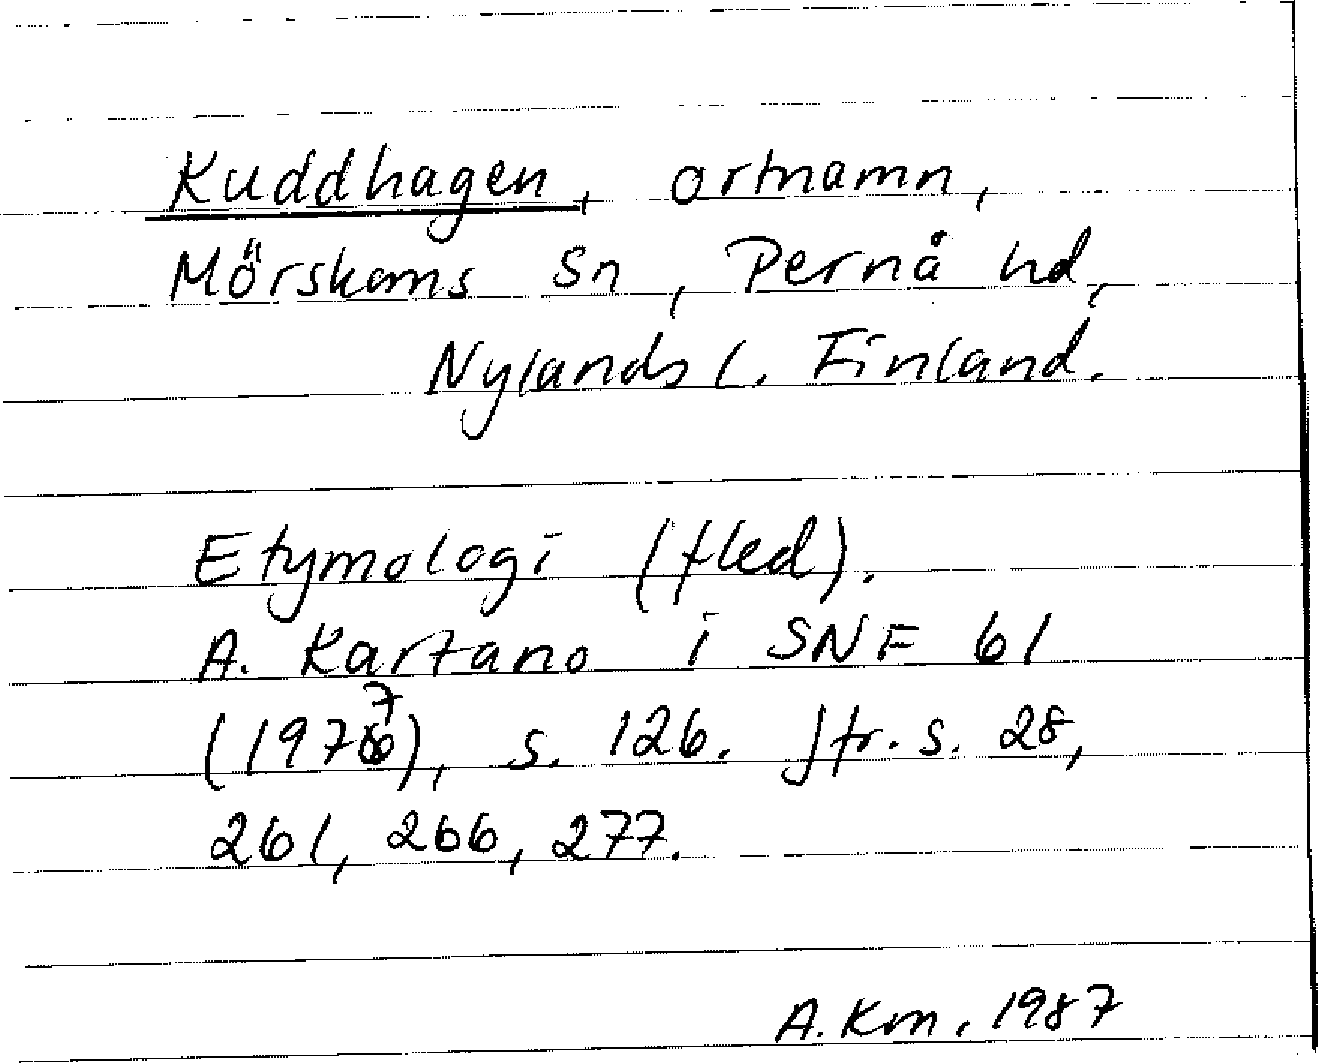 Kuddhagen, ortnamn,
Mörskoms sn, Pernå hd,
Nylands l. Finland.
Etymologi (fled).
A. Kartano i SNF 61
(1977), s. 126. Jfr. s. 28,
261, 266, 277.
A. Km. 1987